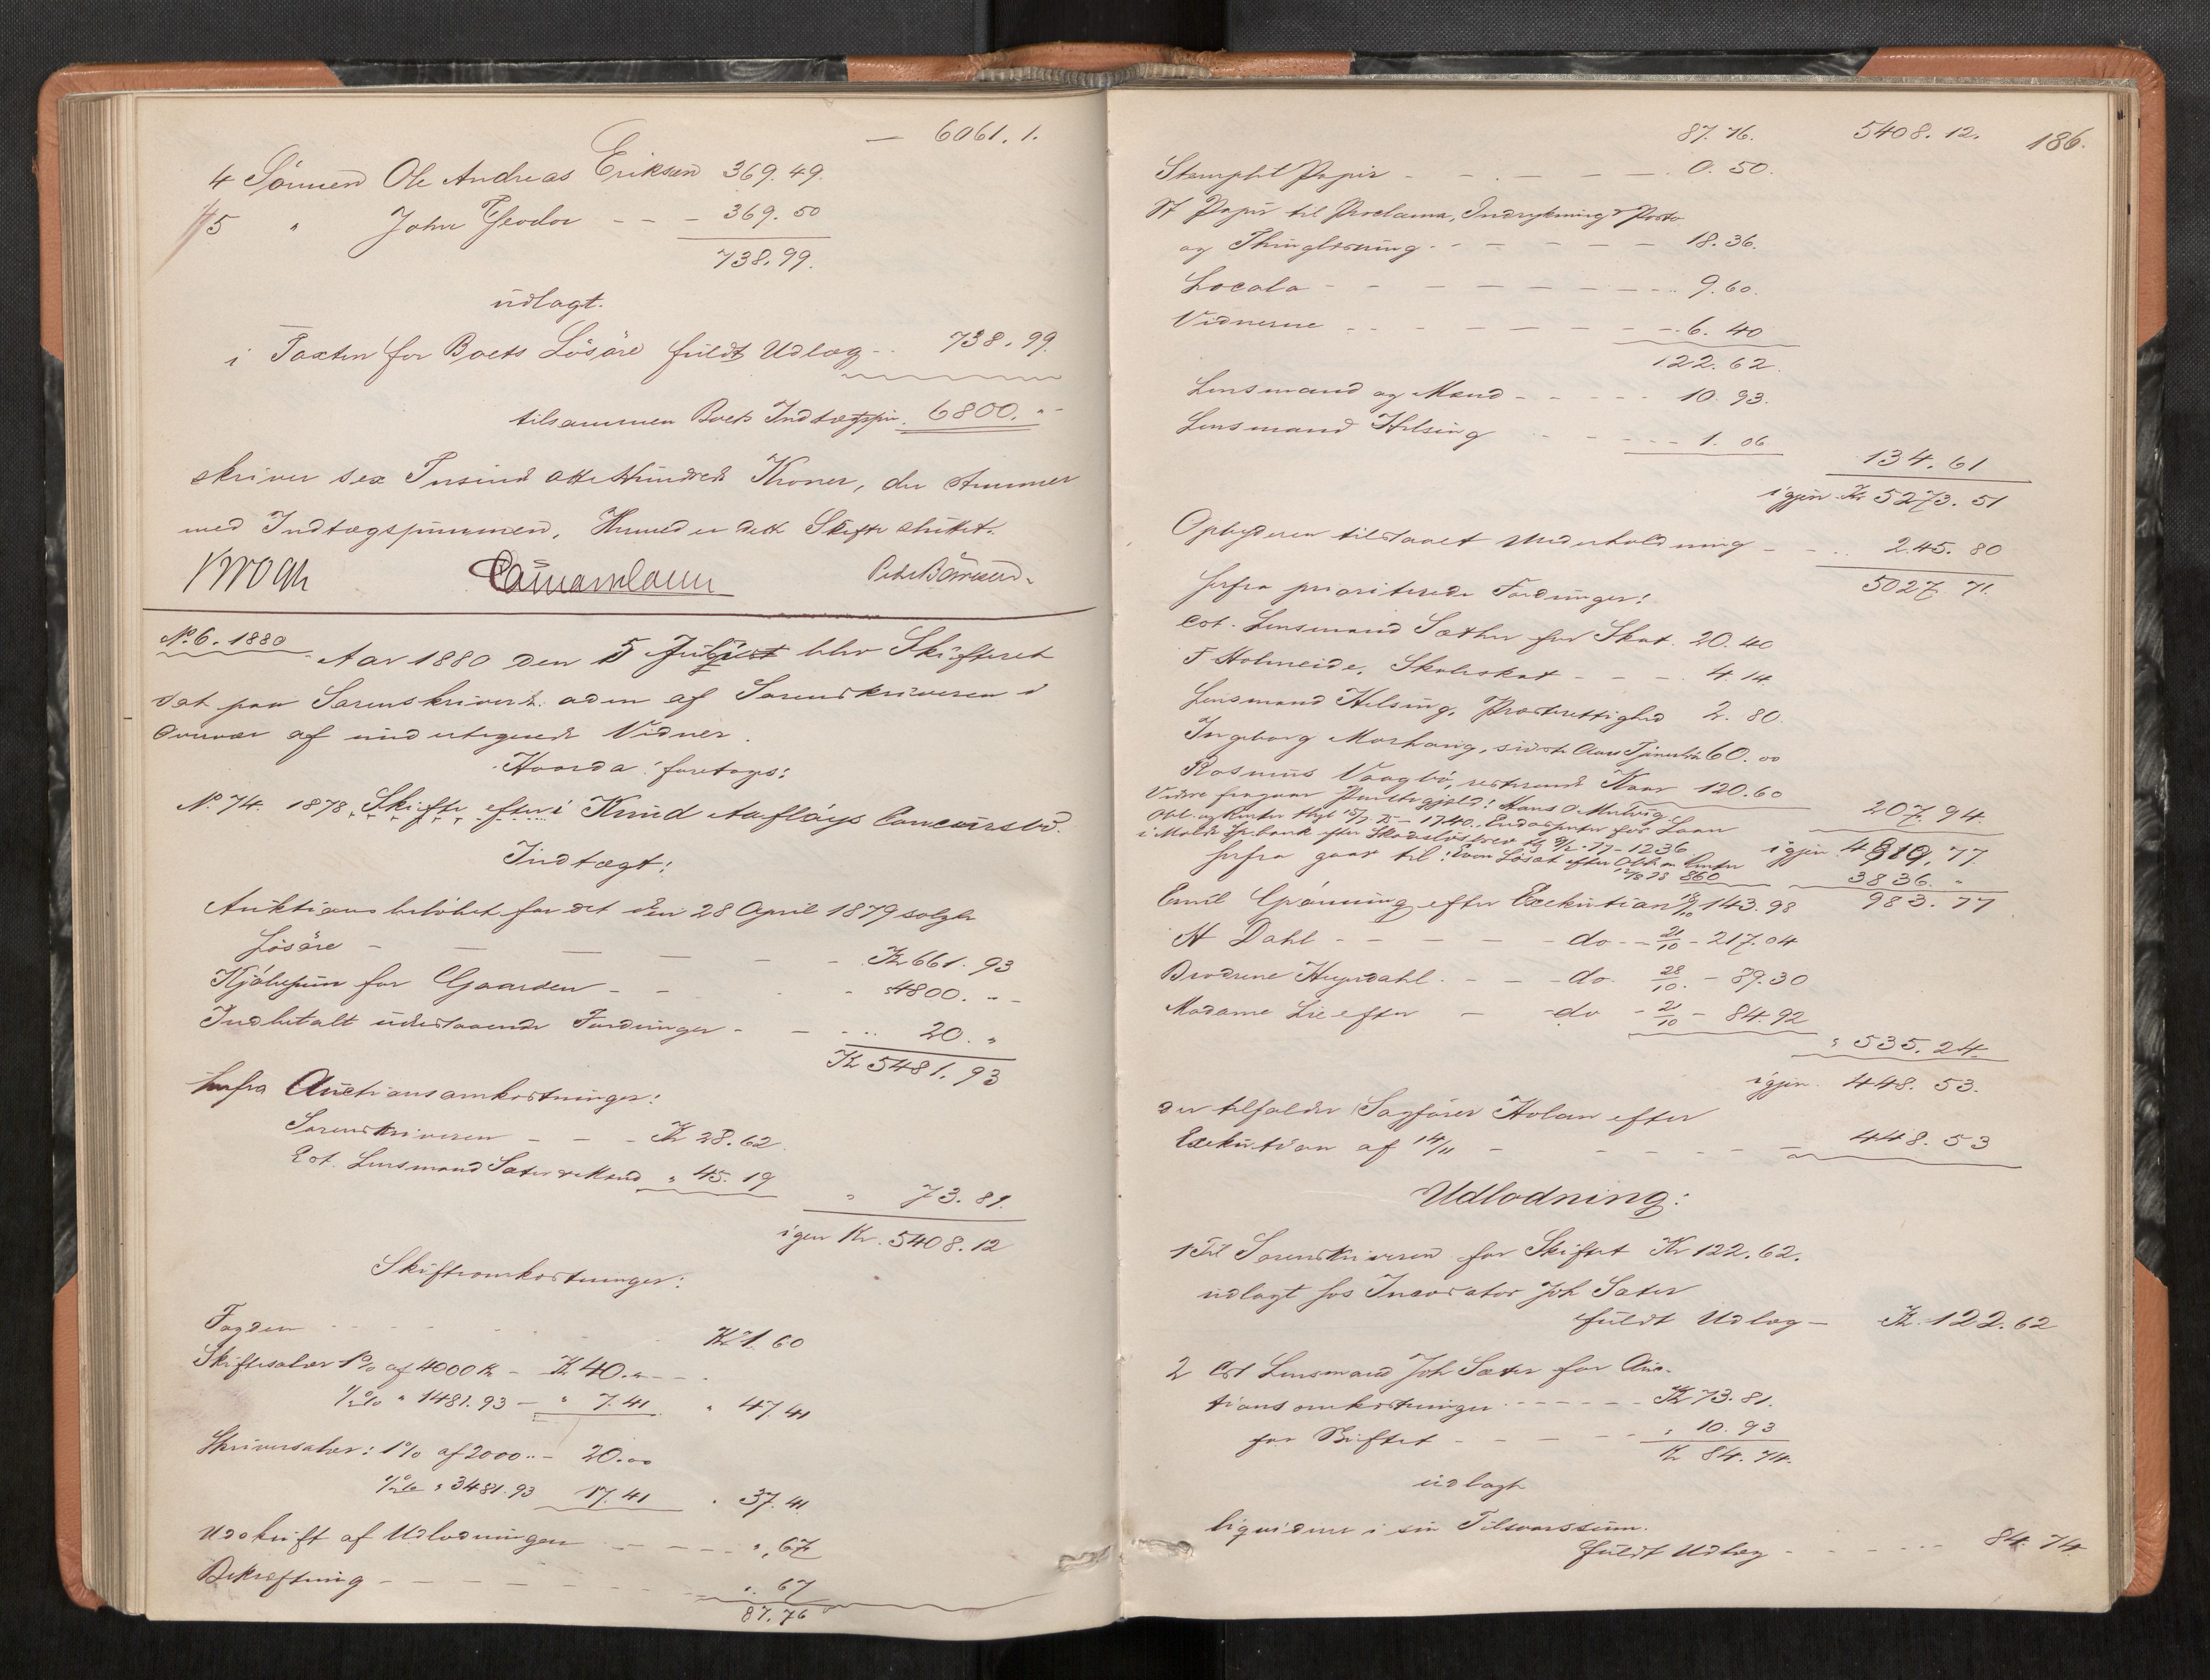 — 6061. 1.
4 Sönnen Ole Andreas Eriksen 369. 49.
5 " John Theodor - - - 369. 50
738. 99.
udlagt.
i Taxten for Boets Lösöre fuldt Udlæg - - 738. 99.
tilsammen Boets Indtægtssum. 6800. " -
skriver sex Tusind otte Hundrede Kroner, der stemmer
med Indtægtssummen. Hermed er dette Skifte sluttet.
Krogh Peder Bärresen
No. 6. 1880 Aar 1880 den 5 Juli blev Skifteret
sat paa Sorenskriver af Sorenskriveren i
Overvær af undertegnede Vidner.
Hvorda foretoges:
No. 74. 1878. Skifte i Knud Aafløys Concursbo.
Indtægt:
Auktionsbelöbet for det den 28 April 1879 solgte
Lösöre - - - - - - Kr 661. 93
Kjöbesum for Gaarden - - - - 4800. - -
Indbetalt udestaaende Fordringer - - - - 20. "
Kr 5481. 93
herfra Auctionsomkostninger:
Sorenskriveren - - - Kr 28. 62
Cst. Lensmand Sæter & Mænd " 45. 19
" 73. 81.
igen Kr. 5408. 12
Skifteomkostninger:
Fogden - - - - Kr 1. 60
Skiftesalær 1% af 4000 Kr - Kr 40. " - - -
1/2% " 1481. 93 - " 7. 41 " 47 41
Skriversalær: 1% af 2000 .. - 20. 00
1/2% " 3481. 93 17. 41 " 37. 41
Udskrift af Udlodningen - - - - ", 67
Bekræftning - - - - - - - ". 67
87. 76
87. 76. 5408. 12. 186.
Stemplet Papir - - - - - - 0. 50.
St Papir til Proclama, Indrykning & Porto
og Thinglæsning - - - - - - 18. 36.
Locale - - - - - - - - - 9. 60.
Vidnerne - - - - - - - - 6. 40
122. 62.
Lensmand og Mænd - - - - - 10. 93.
Lensmand Helsing - - - - - 1. 06
134. 61
igjen Kr 5273. 51
Opbyderen tilstaaet Underholdning - - .. 245. 80
5027. 71.
herfra prioriterede Fordringer:
Cst. Lensmand Sæther for Skat. 20. 40
T Holmeide, Skoleskat - - - . 4 14.
Lensmand Helsing, Præsterettighed 2. 80.
Ingeborg Morhaug, sidste Aars Tjenestelön 60. 00
Rasmus Vaagbö, resterende Kaar 120. 60
207. 94.
Videre fragaar Pantegjæld: Hans O Mulvig
Obl. og Renter thgl 15/7 75 - 1740. Endorsenter for Laan
i Molde Sp.bank efter Skadeslösbrev 9/2. 77 - 1236
igjen 4819. 77.
herfra gaar til: Even Löset efter Obl. m. Renter
12/8 78 860
3836. "
983. 77
Emil Grönning efter Execution 10/10 143. 98
A Dahl - - - - - - do - - 21/10 - 217. 04
Brödrene Huusdahl. - - - do. 28/10. - 89. 30
Madame Lie efter - - do - 21/10 - 84. 92
" 535. 24.
igjen. 448. 53.
der tilfalder Sagförer Holan efter
Exekution af 14/11 - - - - - - 448. 53
Udlodning:
1 Til Sorenskriveren for Skiftet Kr 122. 62.
udlagt hos Incassator Joh Sæter
fuldt Udlæg - Kr. 122. 62
2 Cst Lensmand Joh Sæter for Auc-
tionsomkostninger - - - - - - Kr 73. 81.
for Skiftet - - - - - - " 10. 93
Kr 84. 74.
udlagt
liquiderer i sin Tilsvarssum.
fuldt Udlæg - - - - - - 84. 74.